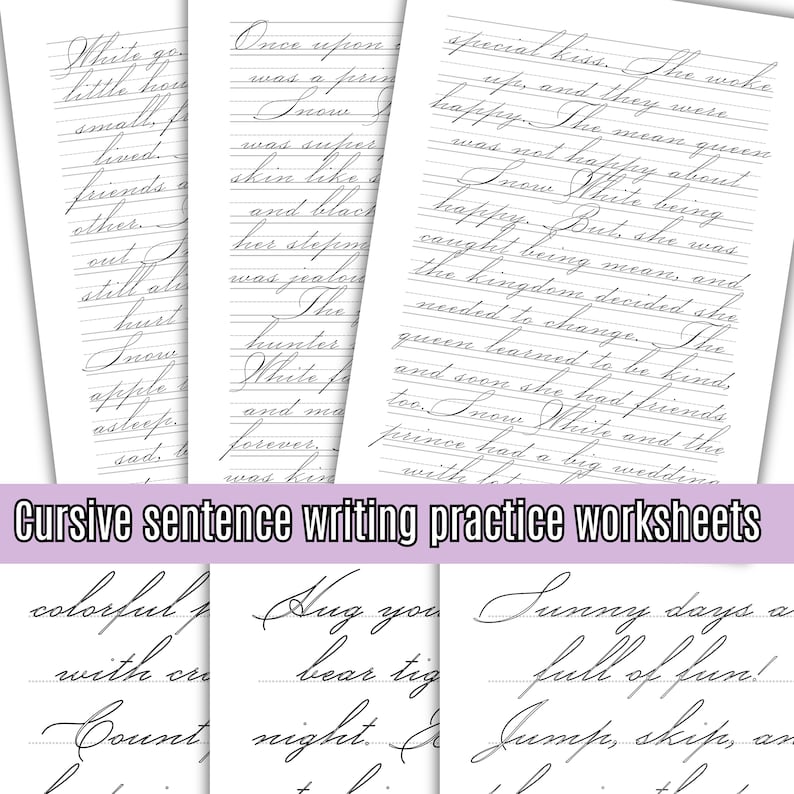 White go
little hou
small, fr
lived.
friends a
other.
out
still ali
hurt
Snow
apple t
asleep.
sad, b
Once upon a
was a prin
Snow
was super
skin like s
and black
her stepm
was jealou
The
hunter
White fo
and ma
forever.
was kin
special kiss. She woke
up, and they were
happy. The mean queen
was not happy about
Snow White being
happy. But, she was
caught being mean, and
the kingdom decided she
needed to change. The
queen learned to be kind,
and soon she had friends
too. Snow White and the
prince had a big wedding
with
Cursive sentence writing practice worksheets
colorful p
with cr
Count
Hug you
bear tig
night.
Sunny days a
full of fun!
Jump, skip, an